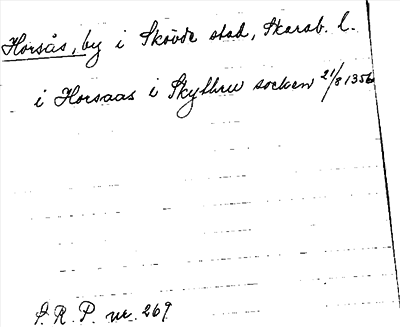 Horsås, by i Skövde stad, Skarab. l.
i Horsaas i Skythwe socken 21/8 1356
S.R.P. nr. 269